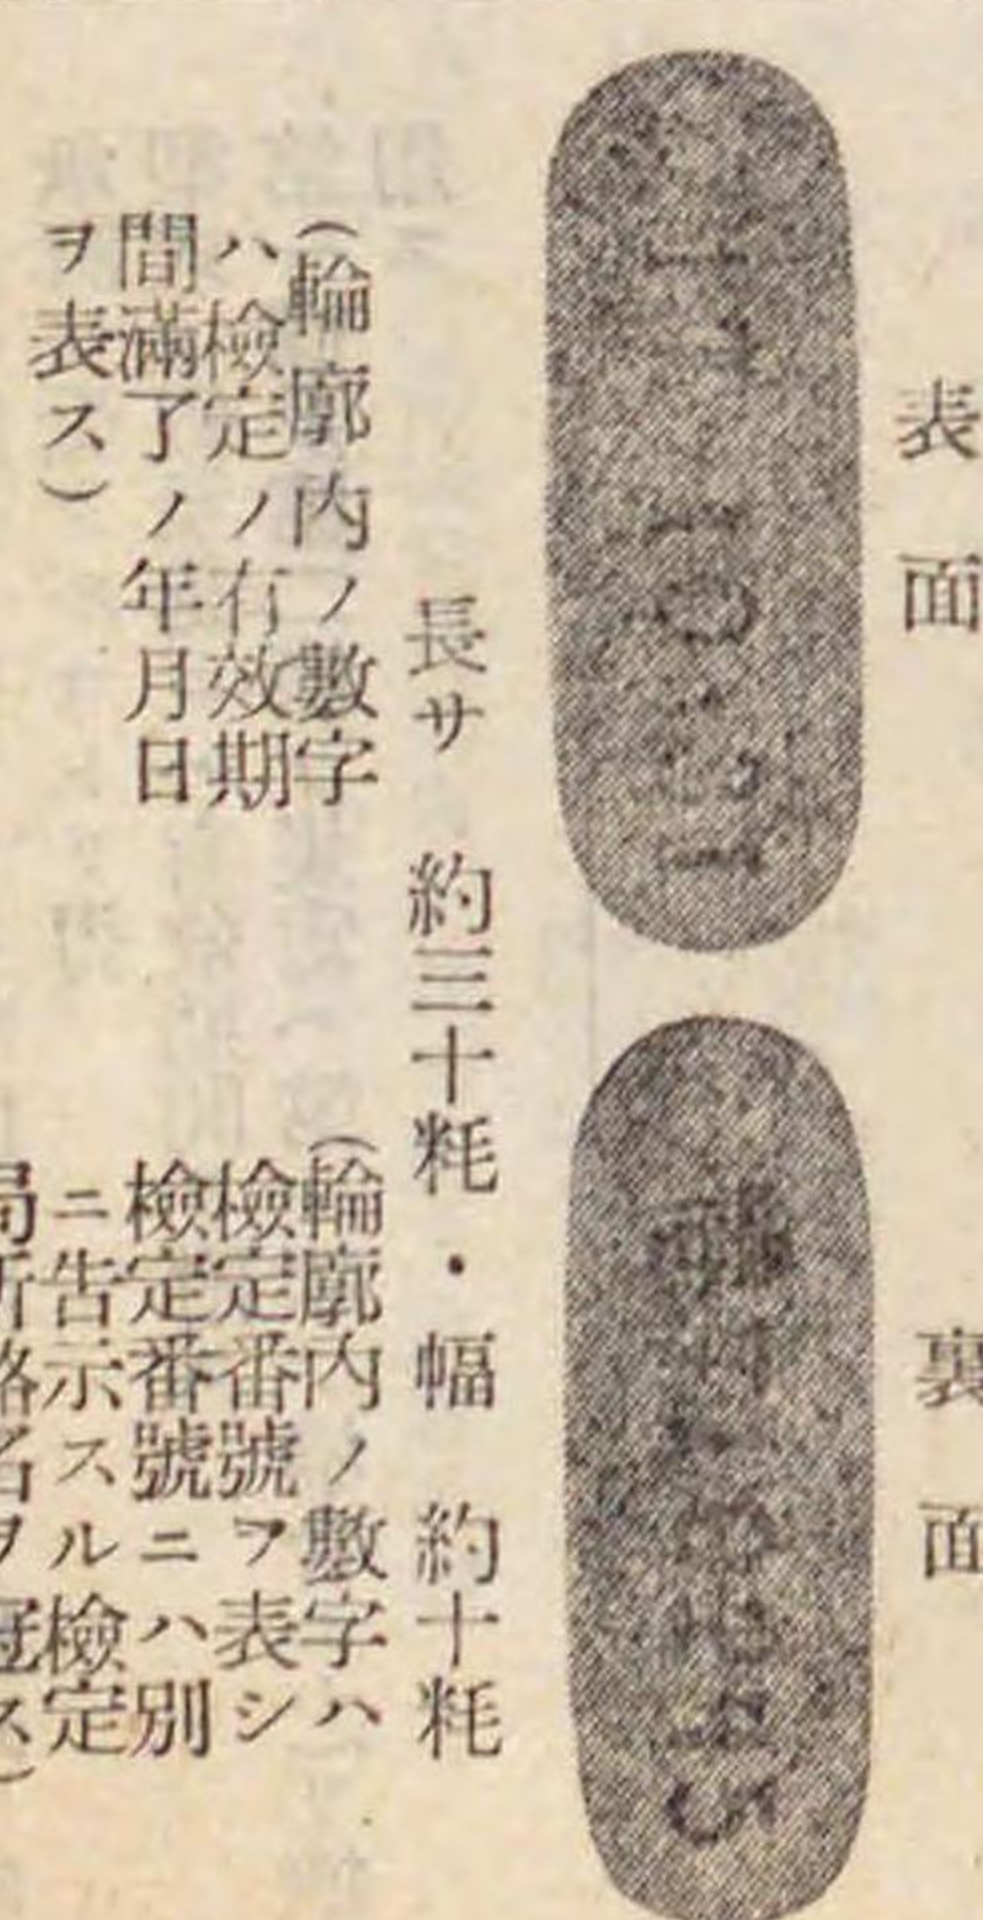 表面
裏面
長サ 約三十粍・幅 約十粍
(輪廓内ノ數字
ハ檢定ノ有效期
間滿了ノ年月日
ヲ表ス)
(輪廓内ノ數字ハ
檢定番號ヲ表シ
檢定番號ニハ別
ニ告示スル檢定
局所略名ヲ冠ス)